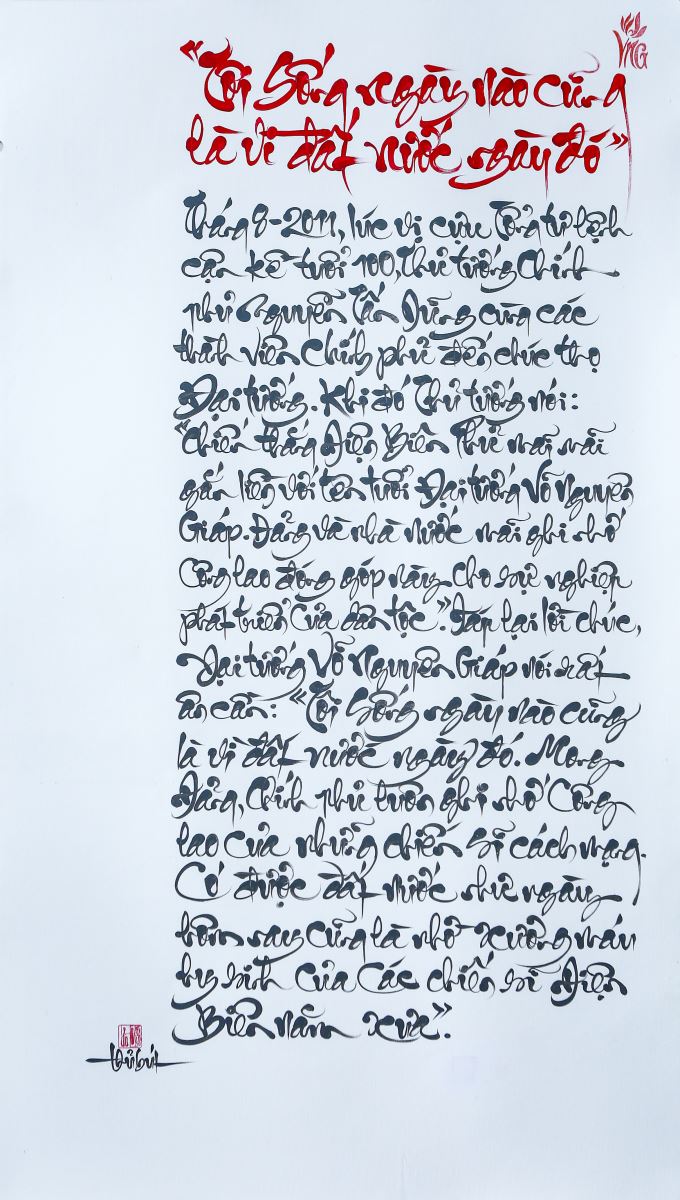 VNG
“Tôi sống ngày nào cũng
là vì đất nước ngày đó”
Tháng 8-2011, lúc vị cựu Tổng tư lệnh
cận kề tuổi 100, Thủ tướng Chính
phủ Nguyễn Tấn Dũng cùng các
thành viên Chính phủ đến chúc thọ
Đại tướng. Khi đó Thủ tướng nói:
“Chiến thắng Điện Biên Phủ mãi mãi
gắn liền với tên tuổi Đại tướng Võ Nguyên
Giáp. Đảng và nhà nước mãi ghi nhớ
Công lao đóng góp này cho sự nghiệp
phát triển của dân tộc”. Đáp lại lời chúc,
Đại tướng Võ Nguyên Giáp nói rất
ân cần: “Tôi sống ngày nào cũng
là vì đất nước ngày đó. Mong
Đảng, Chính phủ luôn ghi nhớ Công
lao của những chiến sĩ cách mạng.
Có được đất nước như ngày
hôm nay cũng là nhờ xương máu
hy sinh của các chiến sĩ Điện
Biên năm xưa”.
thủ bút